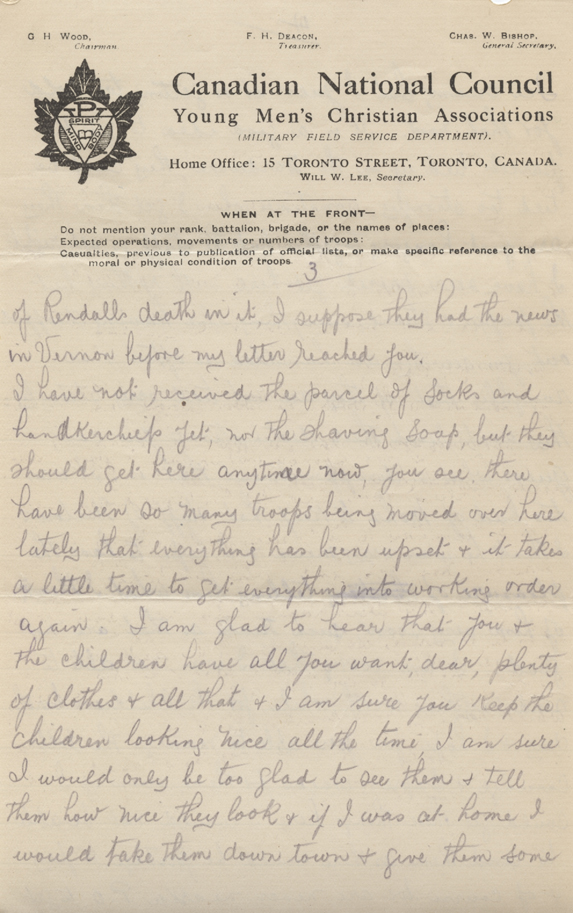 G H WOOD,
Chairman.
F. H. DEACON,
Treasurer.
CHAS. W. BISHOP,
General Secretary.
SPIRIT
MIND
BODY
Canadian National Council
Young Men's Christian Associations
(MILITARY FIELD SERVICE DEPARTMENT).
Home Office: 15 TORONTO STREET, TORONTO, CANADA.
WILL W. LEE, Secretary.
WHEN AT THE FRONT—
Do not mention your rank, battalion, brigade, or the names of places:
Expected operations, movements or numbers of troops:
Casualties, previous to publication of official lists, or make specific reference to the
moral or physical condition of troops
3
of Rendalls death in it, I suppose they had the news
in Vernon before my letter reached you.
I have not received the parcel of socks and
handkerchiefs yet, nor the shaving soap, but they
should get here anytime now, you see there
have been so many troops being moved over here
lately that everything has been upset & it takes
a little time to get everything into working order
again. I am glad to hear that you &
the children have all you want, dear, plenty
of clothes & all that & I am sure you keep the
children looking nice all the time, I am sure
I would only be too glad to see them & tell
them how nice they look & if I was at home I
would take them down town & give them some